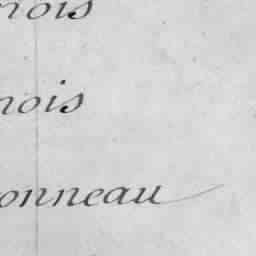 nois
nois
onneau